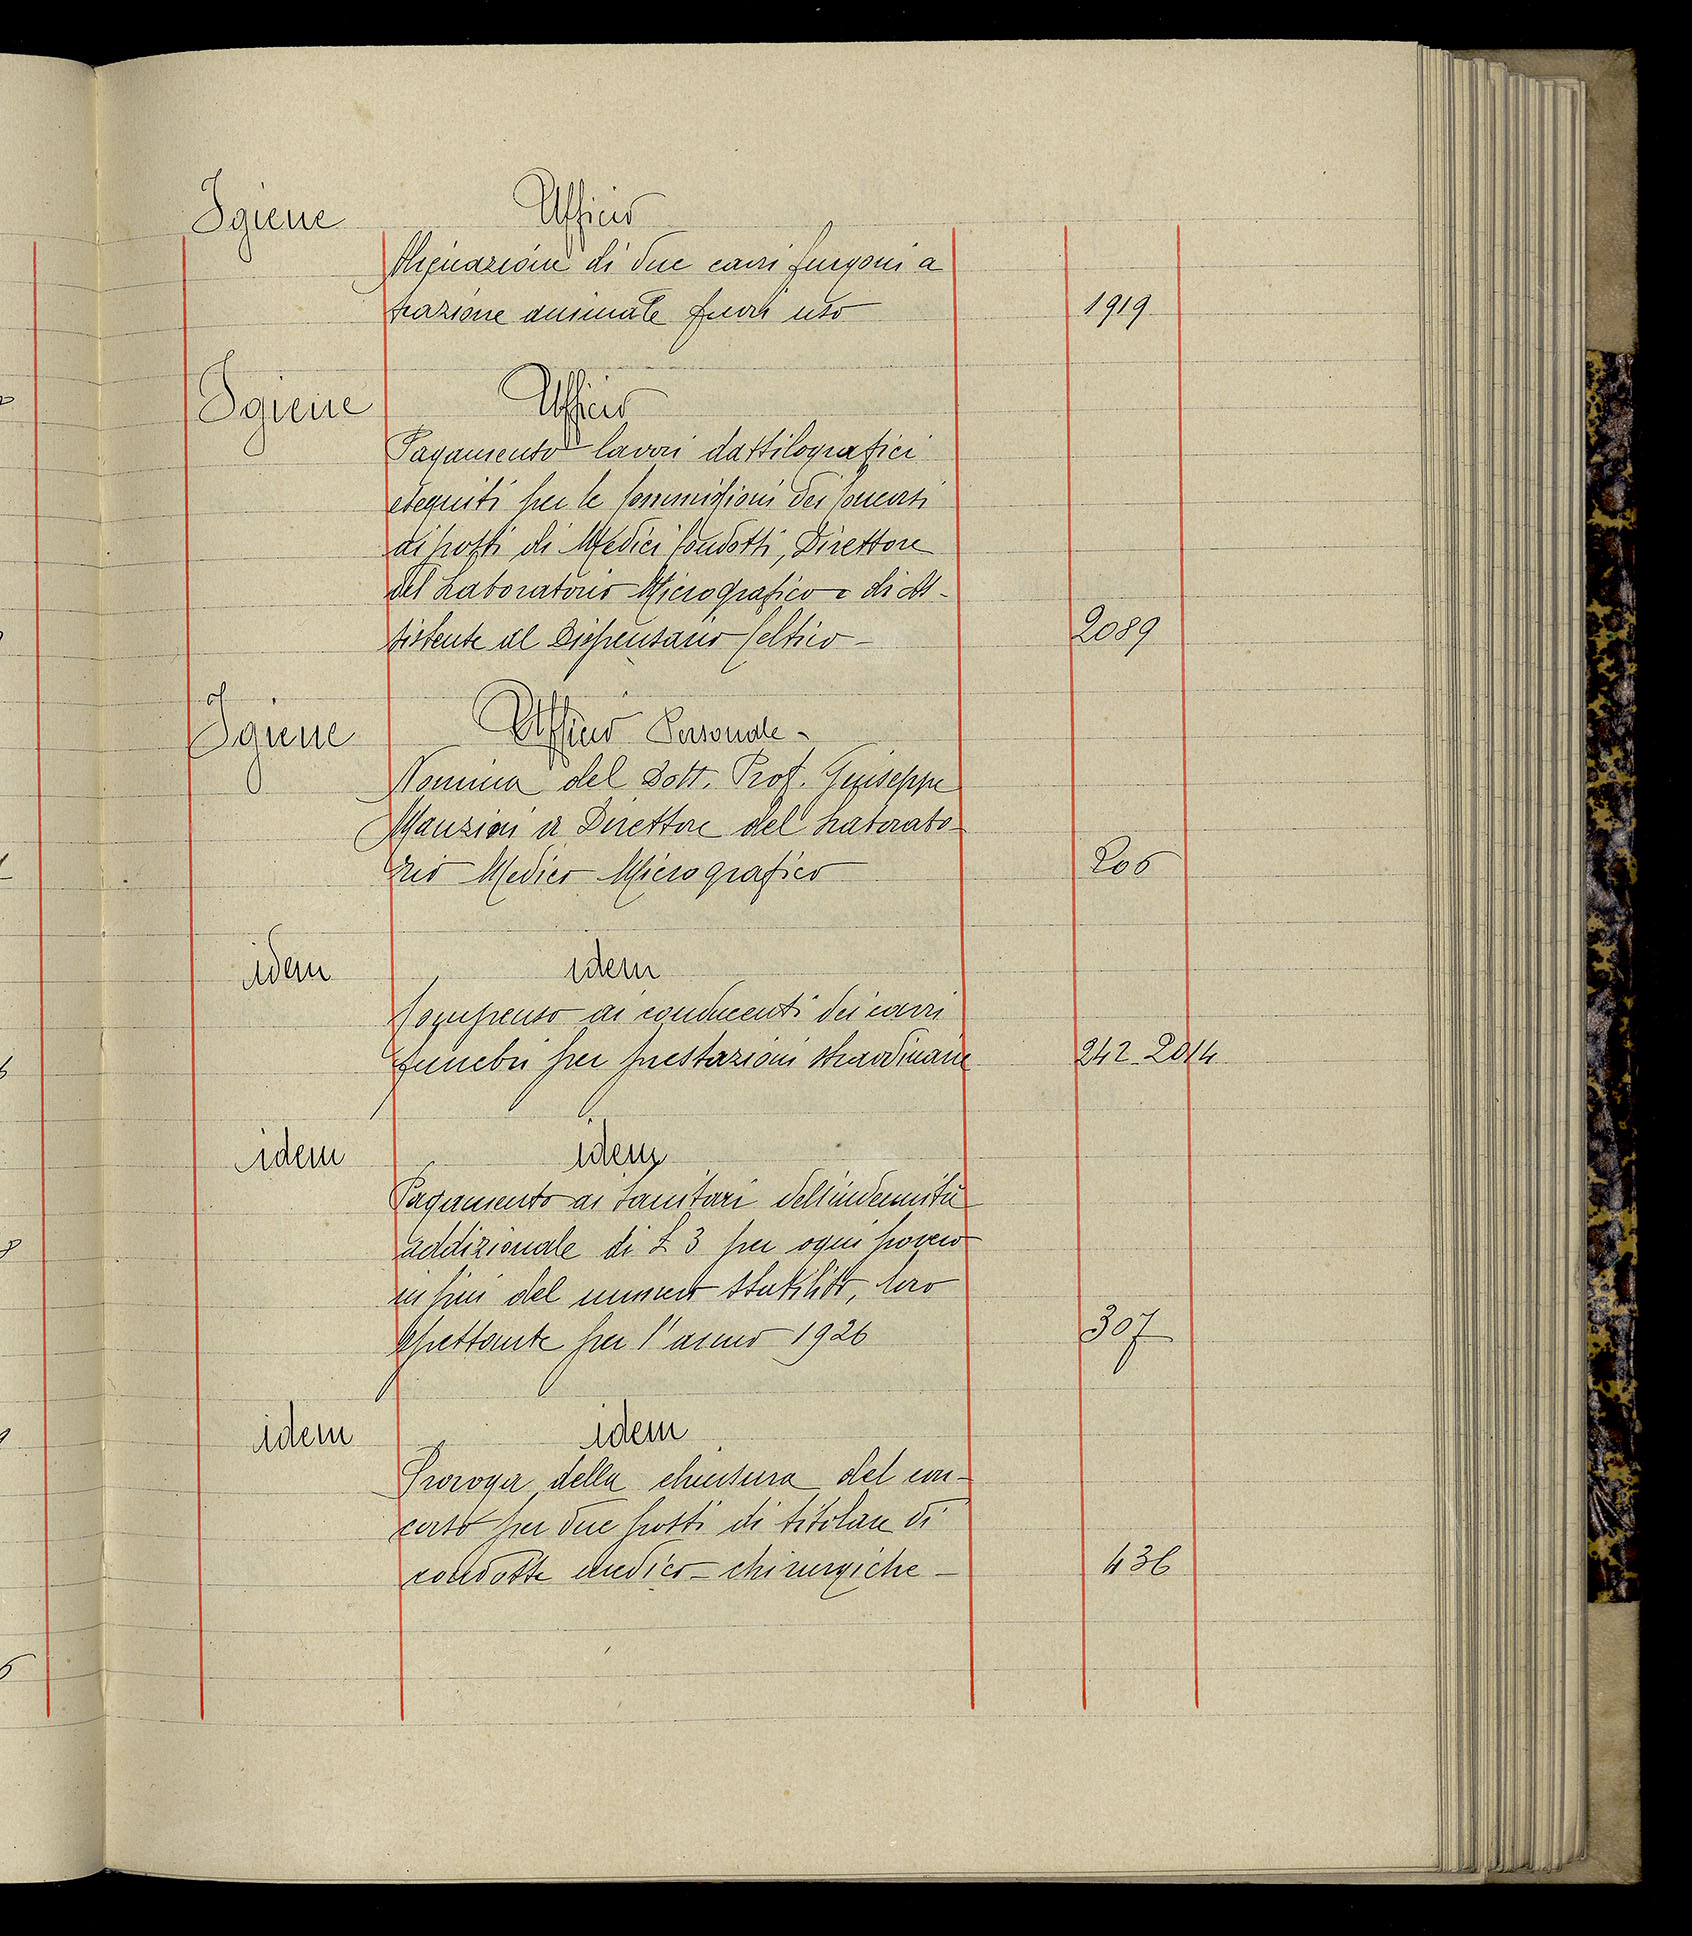 Igiene Ufficio
Alienazione di due carri furgoni a
trazione animale fuori uso 1919
Igiene Ufficio
Pagamento lavori dattilografici
eseguiti per le Commissioni dei Concorsi
ai posti di Medici Condotti, Direttore
del Laboratorio Micrografico e di As-
sistente al Dispensario Celtico - 2089
Igiene Ufficio Personale -
Nomina del Dott. Prof. Giuseppe
Manzini a Direttore del Laborato-
rio Medico Micrografico 206
idem idem
Compenso ai conducenti dei carri
funebri per prestazioni straordinarie 242-2014
idem idem
Pagamento ai Sanitari dell'indennità
addizionale di £ 3 per ogni povero
in più del numero stabilito, loro
spettante per l'anno 1926 307
idem idem
Proroga della chiusura del con-
corso per due posti di titolare di
condotte medico-chirurgiche - 436